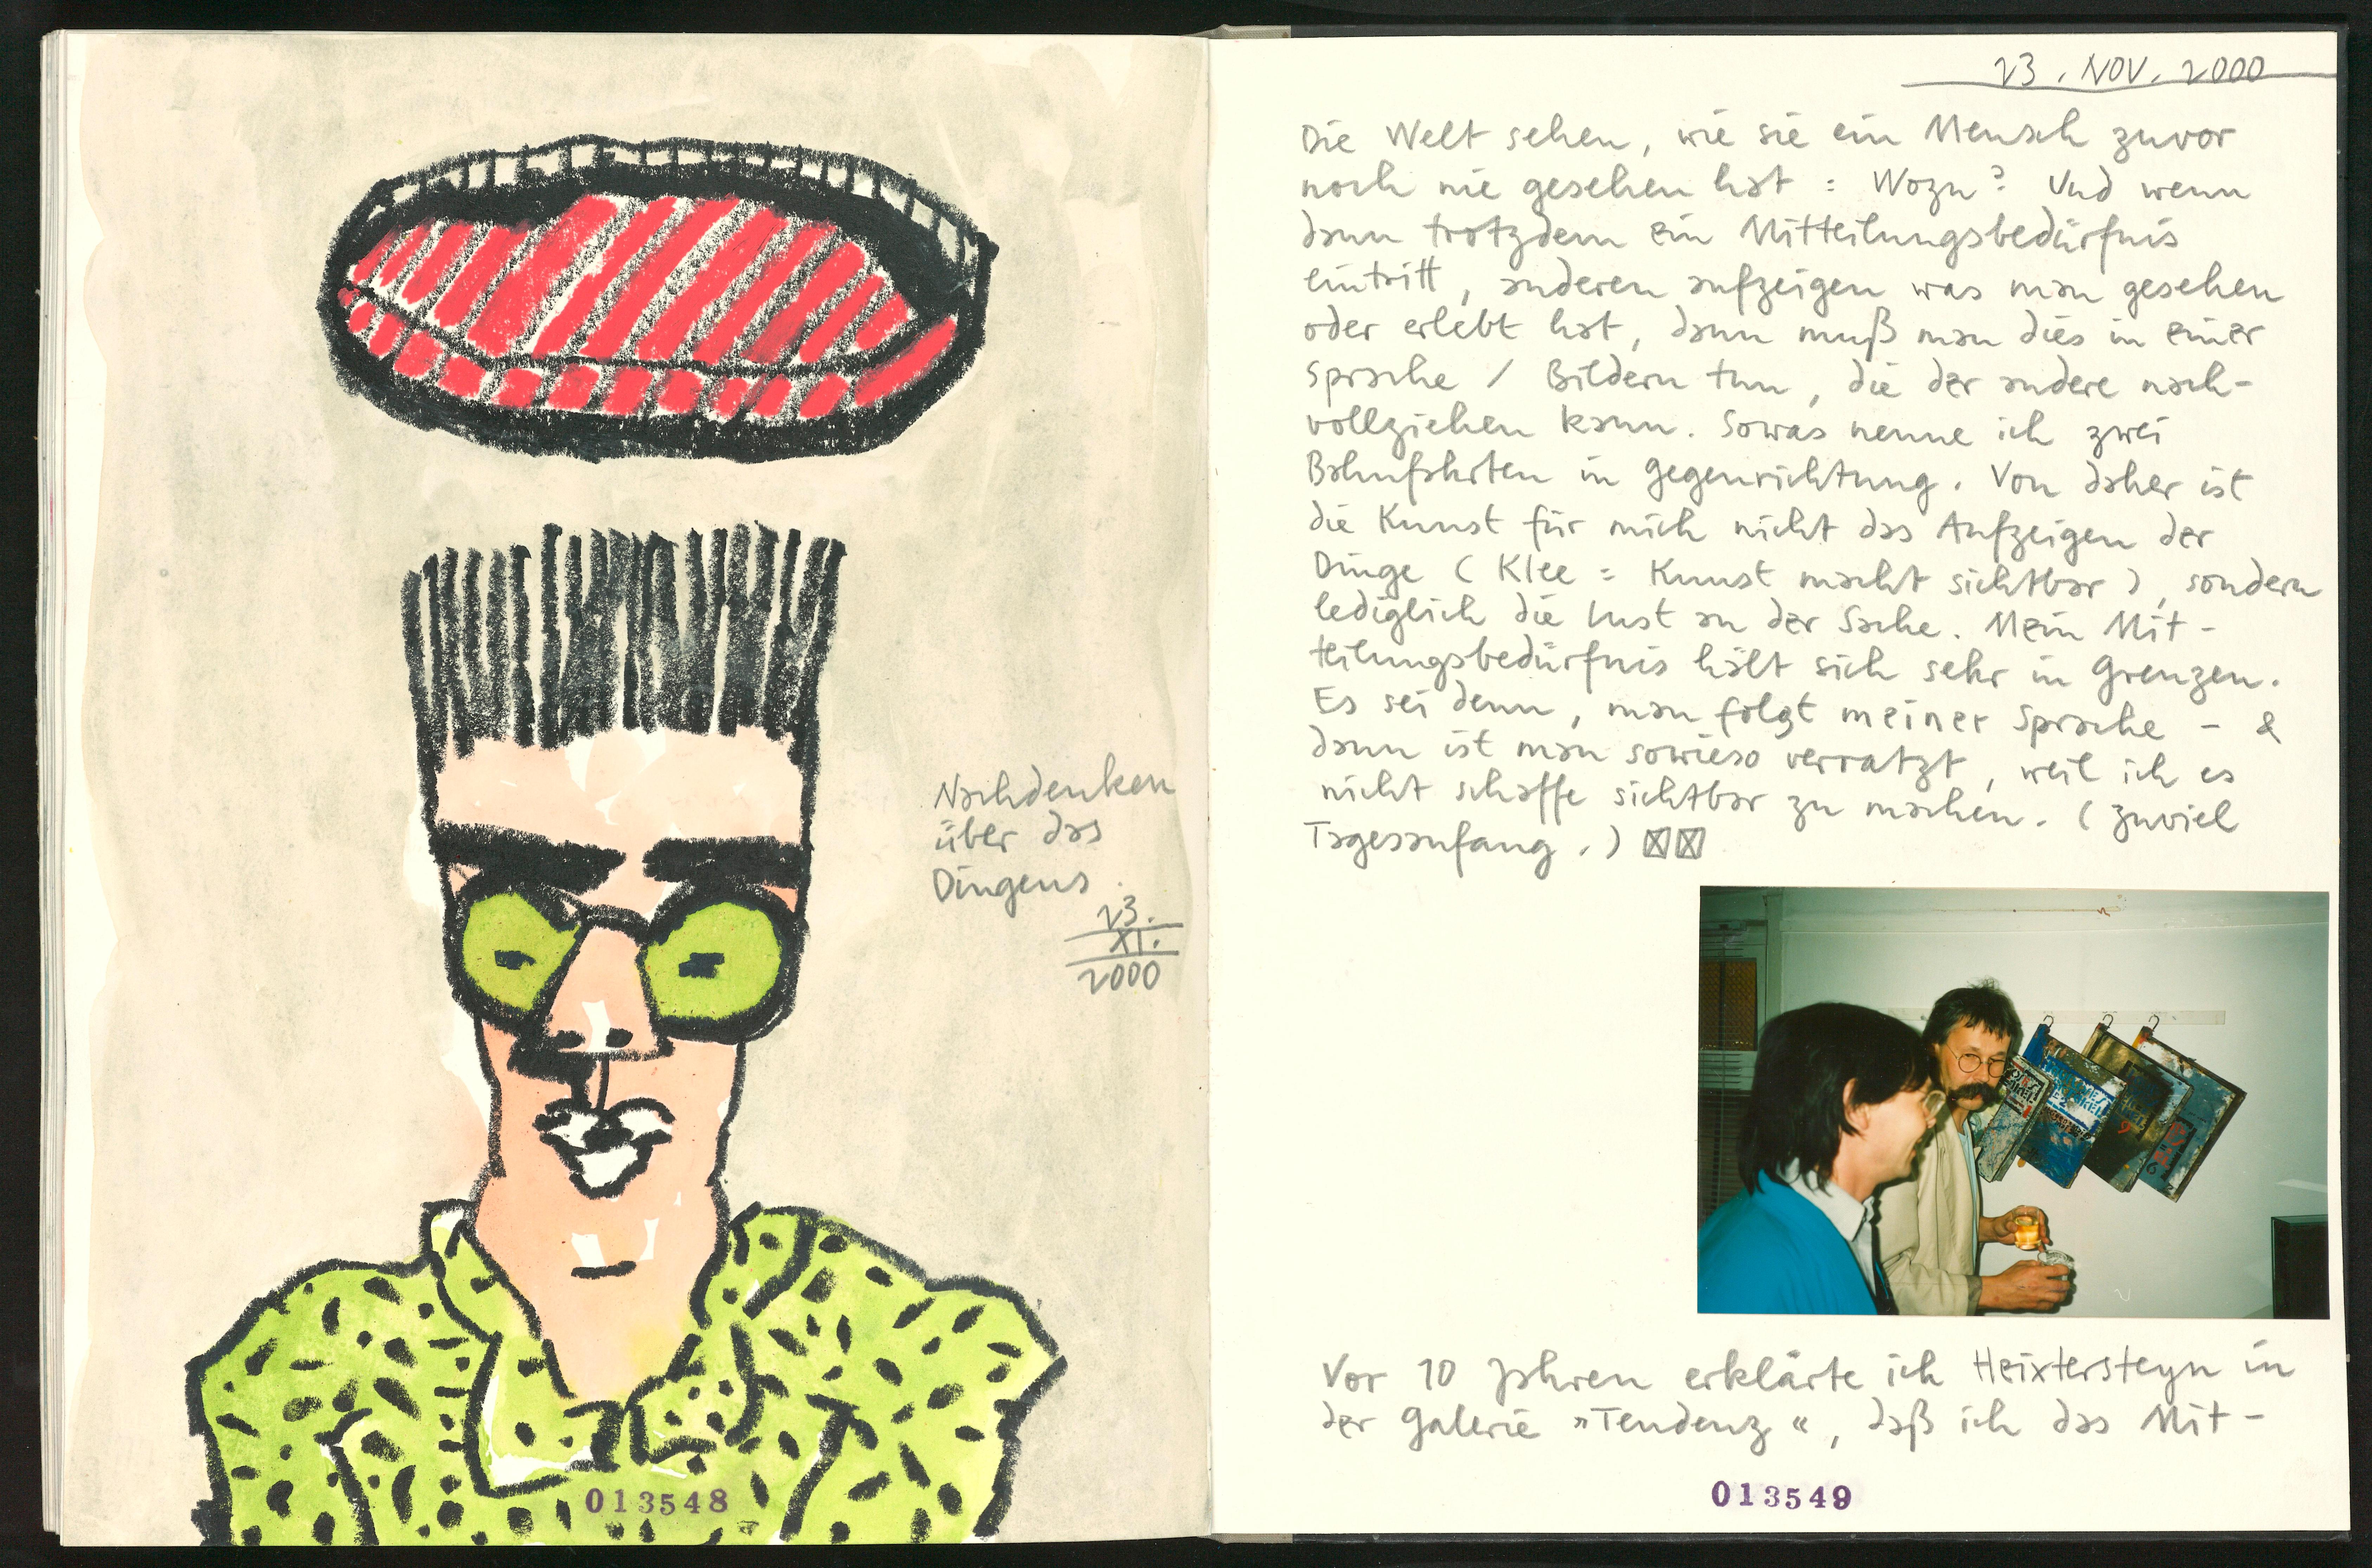 Nachdenken
über das
Dingens.
23.
XI.
2000
013548
23. NOV. 2000
Die Welt sehen, wie sie ein Mensch zuvor
noch nie gesehen hat : Wozu? Und wenn
dann trotzdem ein Mitteilungsbedürfnis
eintritt, anderen aufzeigen was man gesehen
oder erlebt hat, dann muß man dies in einer
Sprache / Bildern tun, die der andere nach-
vollziehen kann. Sowas nenne ich zwei
Bahnfahrten in Gegenrichtung. Von daher ist
die Kunst für mich nicht das Aufzeigen der
Dinge (Klee = Kunst macht sichtbar), sondern
lediglich die Lust an der Sache. Mein Mit-
teilungsbedürfnis hält sich sehr in Grenzen.
Es sei denn, man folgt meiner Sprache - &
dann ist man sowieso verratzt, weil ich es
nicht schaffe sichtbar zu machen. (zuviel
Tagesanfang.)
Vor 10 Jahren erklärte ich Heixtersteyn in
der Galerie »Tendenz«, daß ich das Mit-
013549